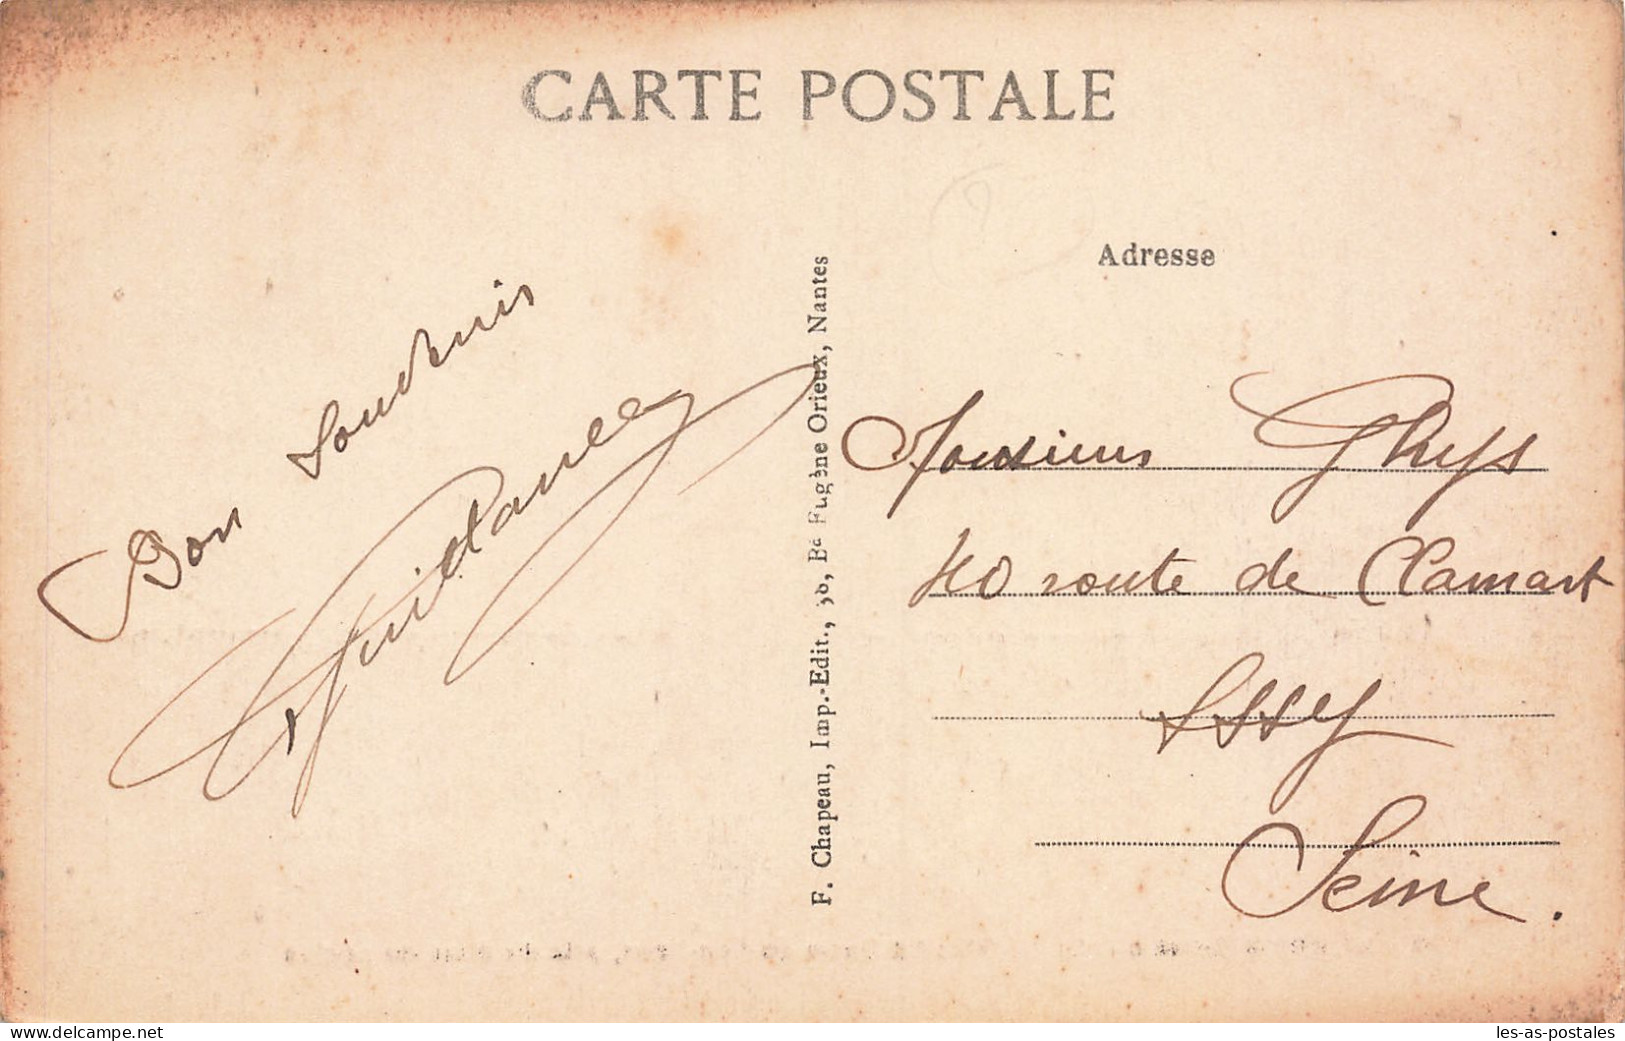 CARTE POSTALE
Adresse
Bon Souvenir
F. Chapeau, Imp.-Edit., 30, Bd Eugène Orieux, Nantes
Monsieur Ghys
40 route de Clamart
Issy
Seine.
delcampe.net
les-as-postales